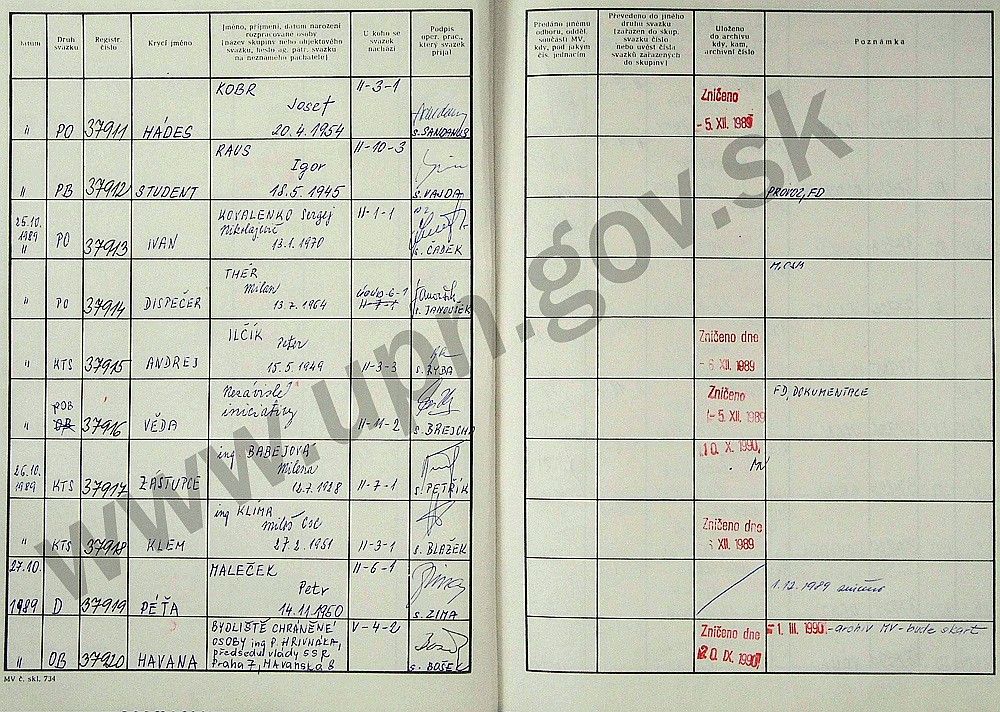 Datum
Druh svazku
Registr. číslo
Krycí jméno
Jméno, příjmení, datum narození
rozpracované osoby
(název skupiny nebo objektového
svazku, heslo ag. pátr. svazku
na neznámého pachatele)
U koho se
svazek
nachází
Podpis
oper. prac.,
který svazek
přijal
Předáno jinému
odboru, odděl.
součásti MV,
kdy, pod jakým
čís. jednacím
Převedeno do jiného
druhu svazku
(zařazen do skup.
svazku číslo
nebo uvést čísla
svazků zařazených
do skupiny)
Uloženo
do archivu
kdy, kam,
archivní číslo
Poznámka
KOBR II-3-1
Josef
" PO 37911 HÁDES 20.4.1954 s. SANDANUS
Zničeno
- 5. XII. 1989
RAUS II-10-3
Igor
" PB 37912 STUDENT 18.5.1945 s. VAJDA
PROVOZ, FD
25.10. KOVALENKO Sergej II-1-1
1989 Nikolajevič
" PO 37913 IVAN 13.1.1970 s. ČADEK
THÉR
Milan
" PO 37914 DISPEČER 13.7.1964 II-7-1 s. JANOUŠEK
ILČÍK
Peter
" KTS 37915 ANDREJ 15.5.1949 II-3-3 s. RYBA
Zničeno dne
- 6. XII. 1989
POB Nezávislé
iniciativy
" OB 37916 VĚDA II-11-2 s. BREJCHA
Zničeno
- 5. XII. 1989
FD, DOKUMENTACE
26.10. ing BABEJOVÁ
Milena
1989 KTS 37917 ZÁSTUPCE II-7-1 s. PETŘÍK
10. X. 1990
ing KLIMA
Miloš CSc
" KTS 37918 KLEM 27.2.1951 II-3-1 s. BLAŽEK
Zničeno dne
6 XII. 1989
27.10. MALEČEK II-6-1
Petr
1989 D 37919 PÉŤA 14.11.1960 s. ZIMA
1.12.1989 zničeno
BYDLIŠTĚ CHRÁNĚNÉ V-4-2
OSOBY ing P. HRIVNÁKA,
předsedu vlády SSR
" OB 37920 HAVANA Praha 7, Havanská 8 s. BOŠEK
Zničeno dne
20. IX. 1990
- 1. III. 1990 - archiv MV - bude skart
MV č. skl. 734
www.upn.gov.sk